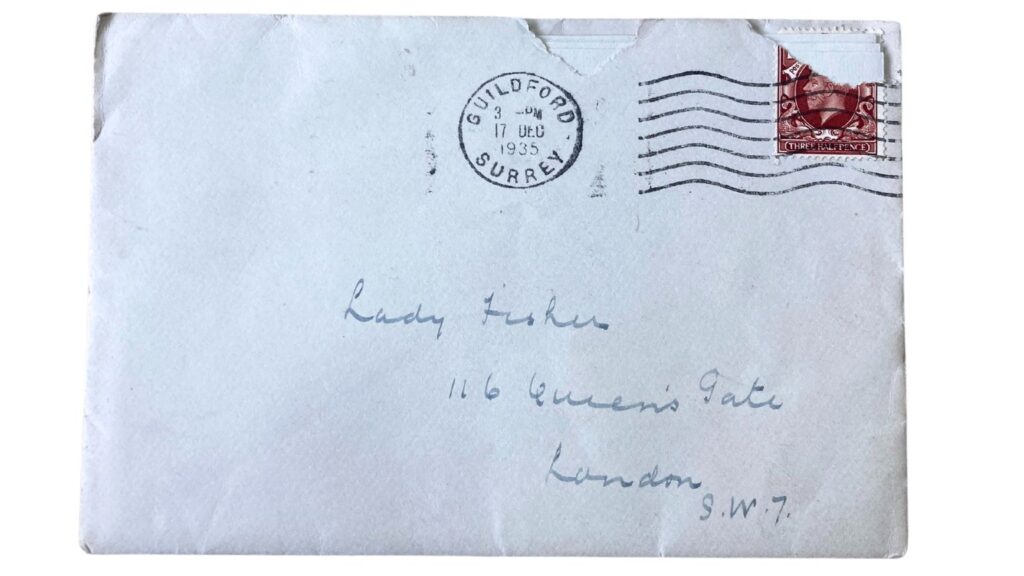 GUILDFORD
3 PM
17 DEC
1935
SURREY
THREE HALFPENCE
Lady Fisher
116 Queen's Gate
London
S.W.7.